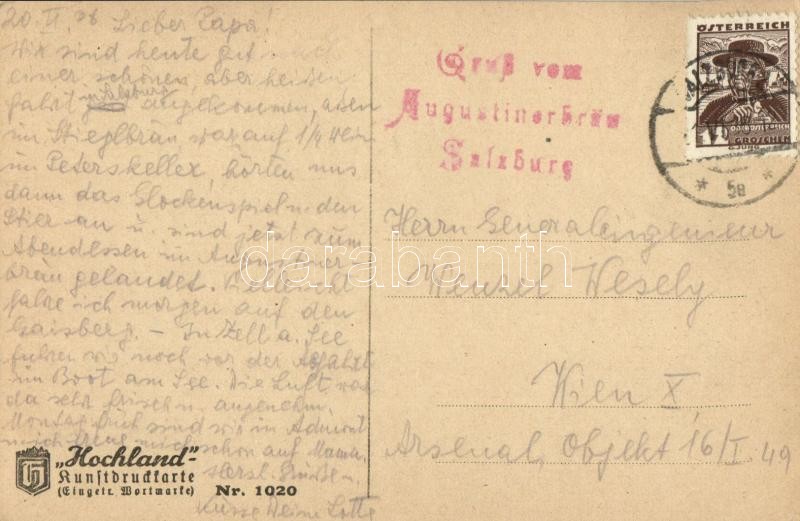 20. VI. 36 Lieber Papa!
Wir sind heute gut nach
einer schönen, aber heißen
Fahrt in Salzburg angekommen, aßen
im Stieglbräu, war auf 1/4 Wein
im Peterskeller, hörten uns
dann das Glockenspiel u. den
Stier an u. sind jetzt zum
Abendessen im Augustiner-
bräu gelandet. Vielleicht
fahre ich morgen auf den
Gaisberg. – In Zell a. See
fuhren wir noch vor der Abfahrt
im Boot am See. Die Luft war
da sehr frisch u. angenehm.
Montag früh sind wir in Admont
freue mich schon auf Mama.
Herzl. Grüße u.
Küsse Deine Lotte
"Hochland"-
Kunstdruckkarte
(Eingetr. Wortmarke) Nr. 1020
Gruß vom
Augustinerbräu
Salzburg
ÖSTERREICH
OBERÖSTERREICH
GROSCHEN
SALZBURG
* 5a *
Herrn Generalingenieur
Wenzel Wesely
Wien X.
Arsenal, Objekt 16/I. 49
darabanth